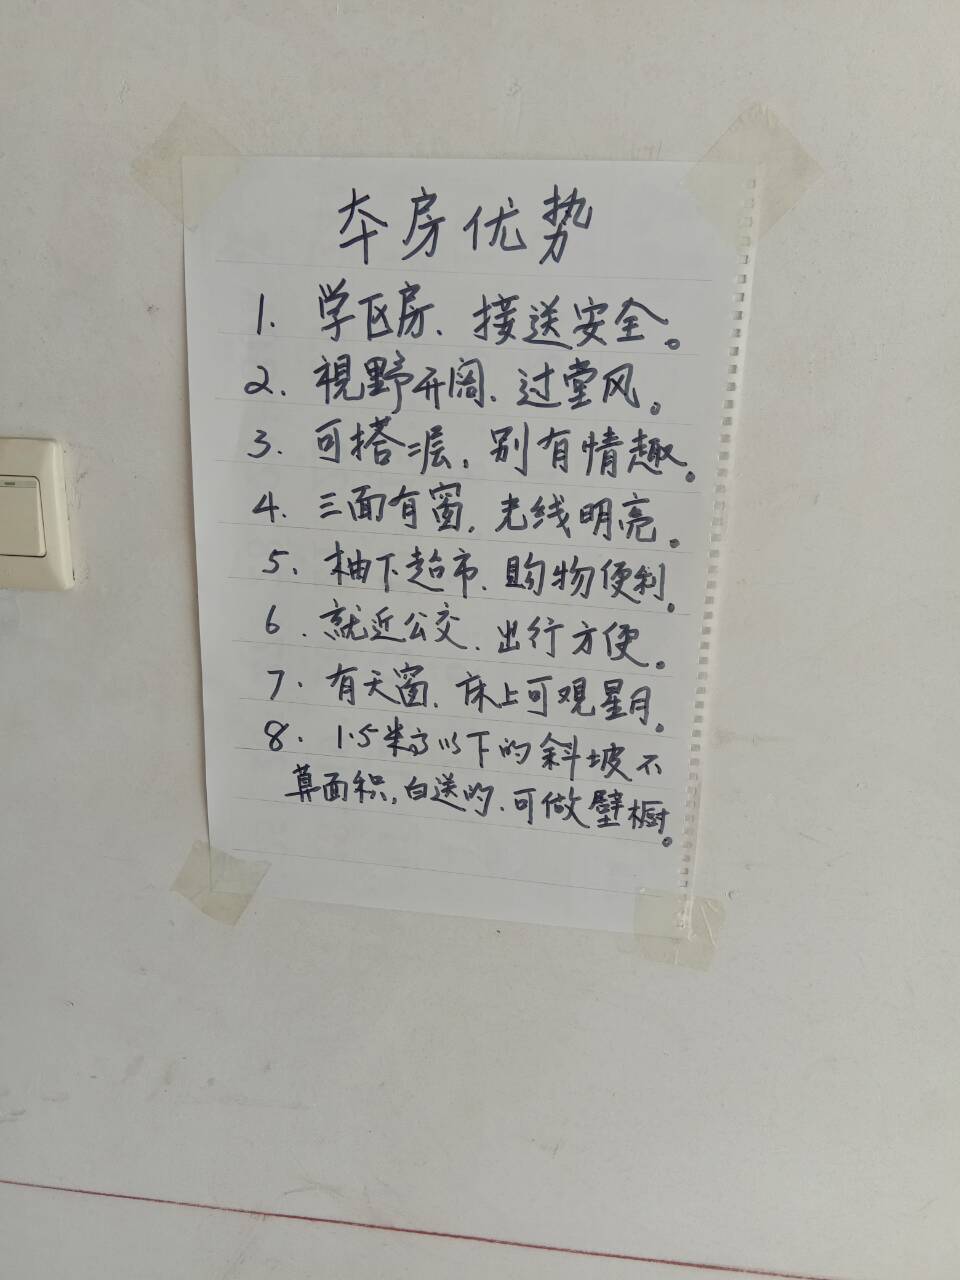 本房优势
1. 学区房、接送安全。
2. 視野开阔、过堂风。
3. 可搭二层,别有情趣。
4. 三面有窗,光线明亮。
5. 柚下超市、购物便利。
6. 就近公交、出行方便。
7. 有天窗,床上可观星月。
8. 1.5米高以下的斜坡不
算面积,白送的、可做壁橱。